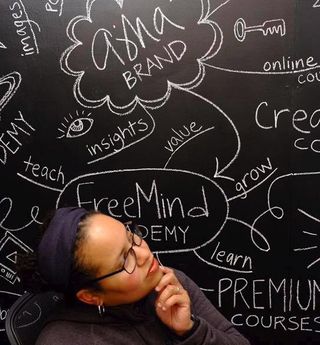 images
asha
BRAND
online
insights
value
Crea
teach
grow
FreeMind
DEMY
learn
PREMIUM
COURSES